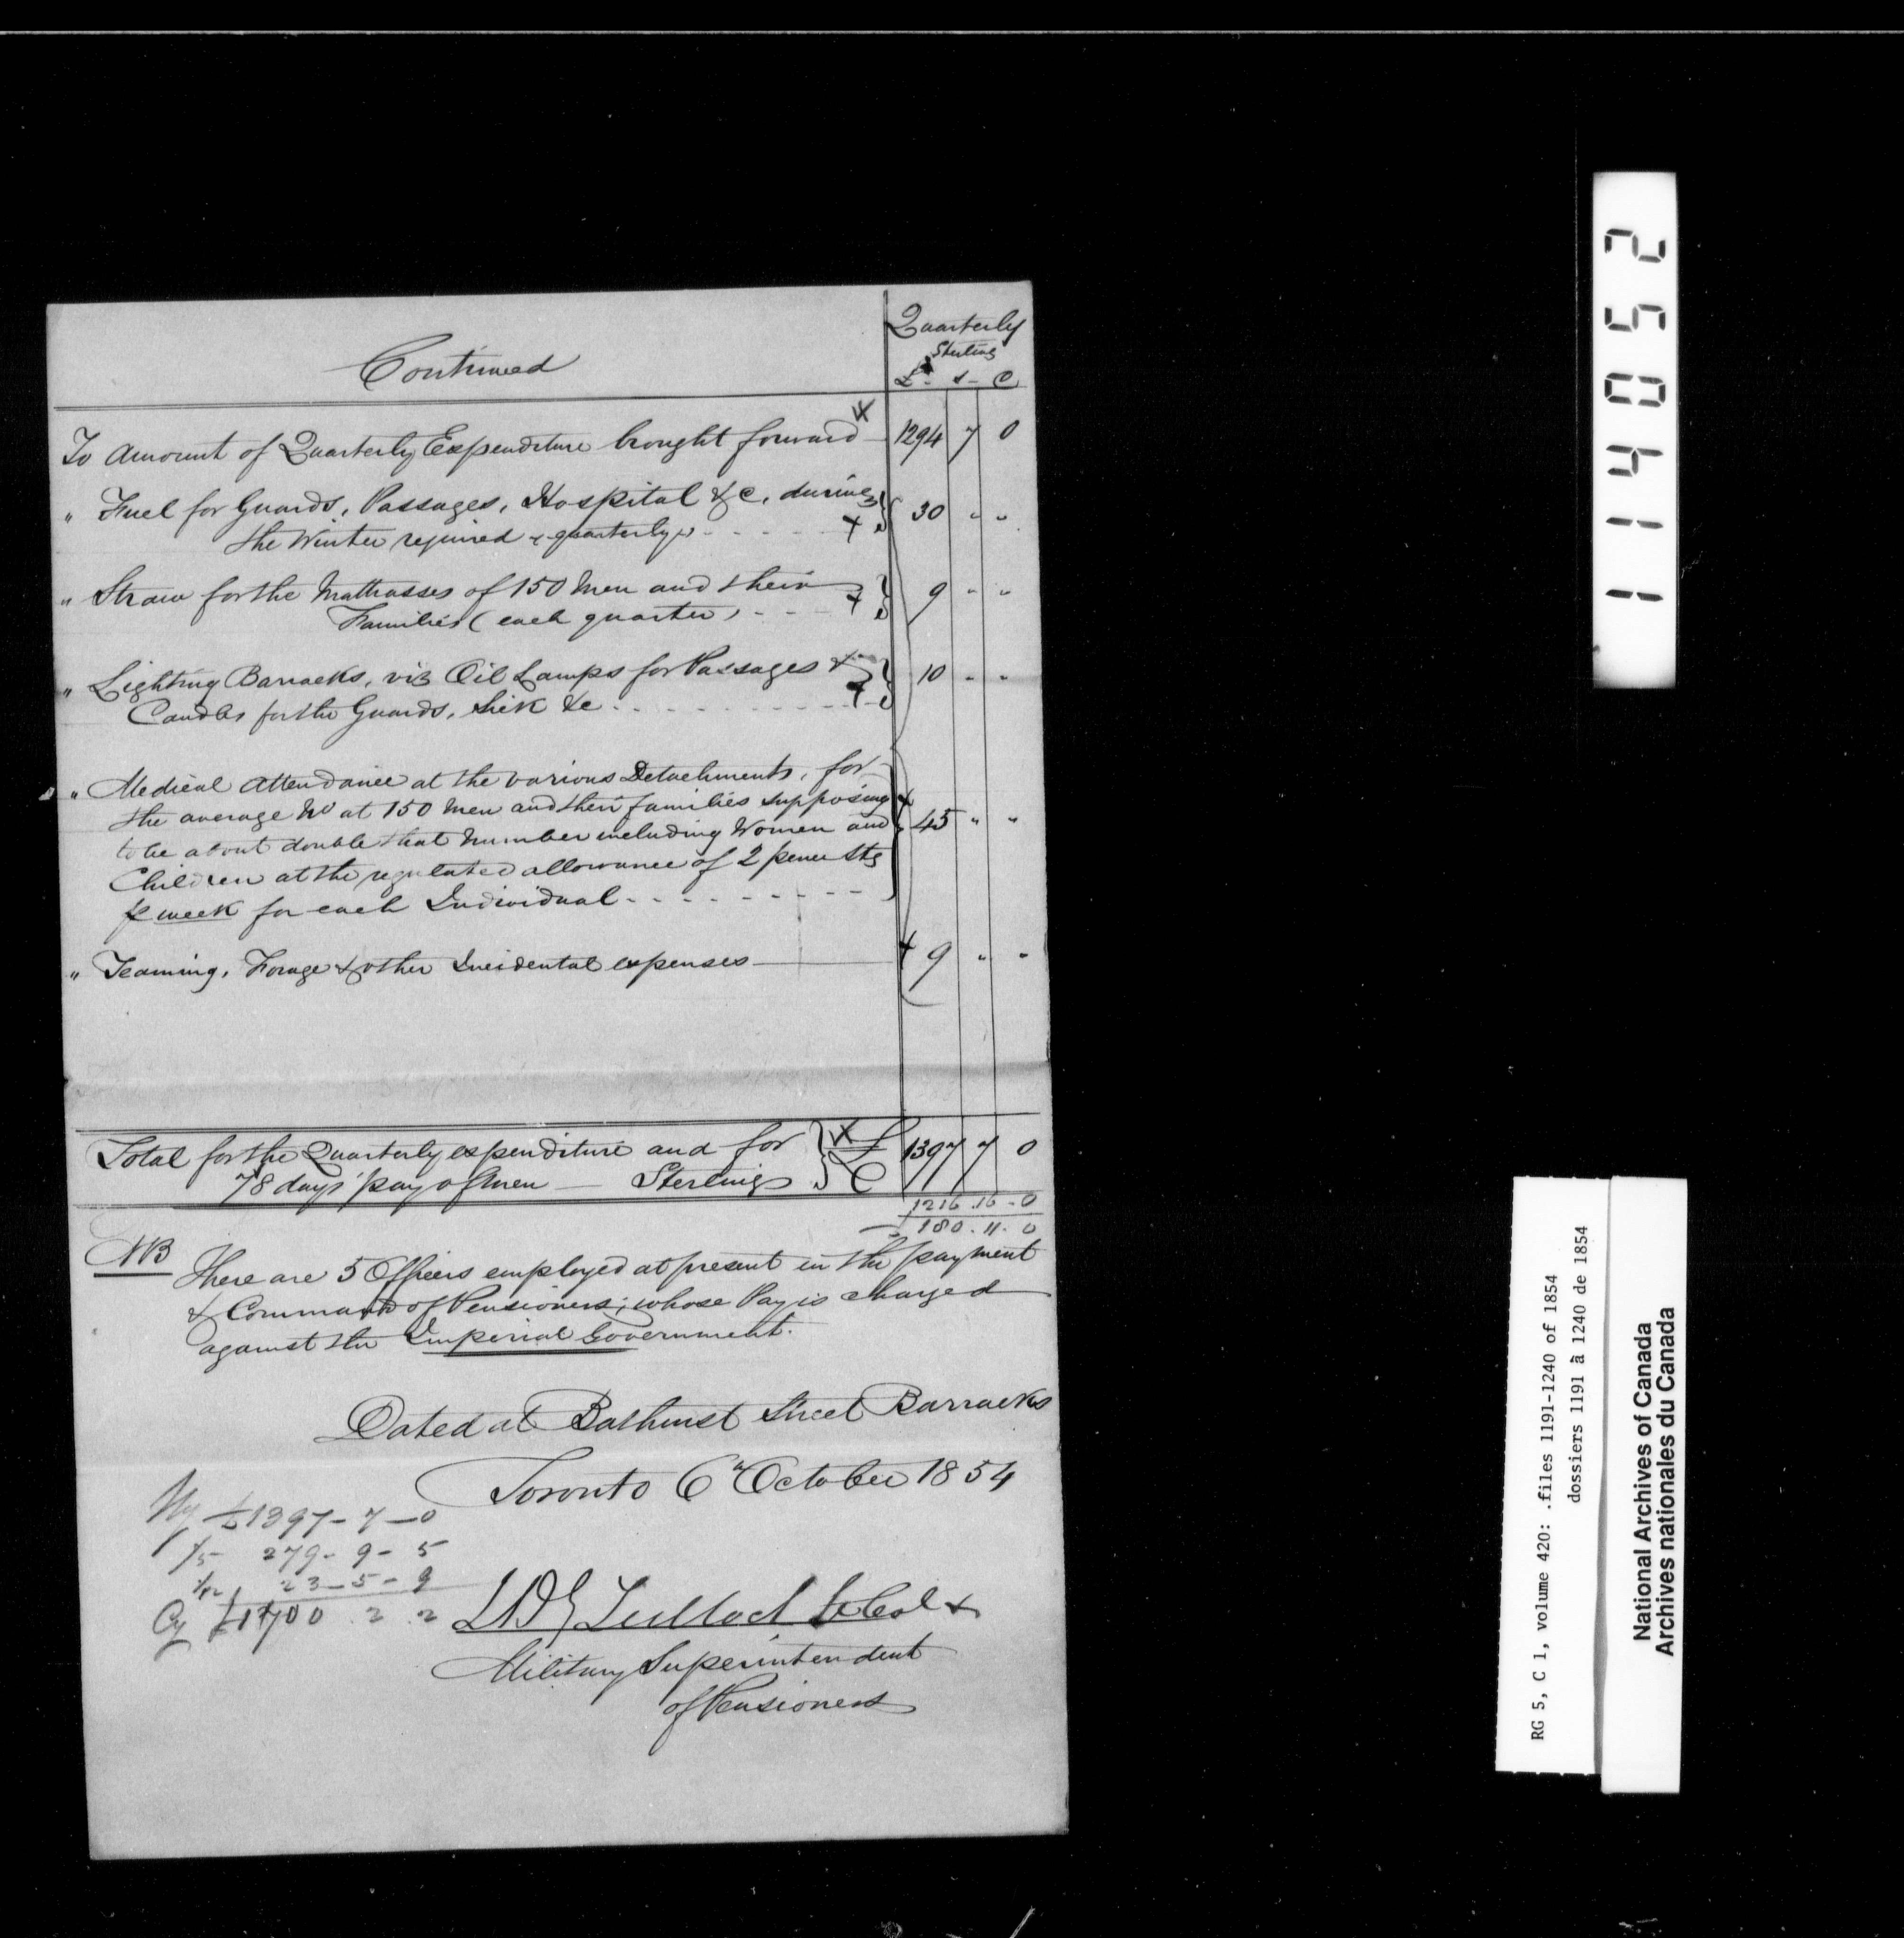 Quarterly
Sterling
Continued
£ - s - d
To Amount of Quarterly Expenditure brought forward 1294 7 0
" Fuel for Guards, Passages, Hospital &c, during
the Winter required (quarterly) - - - - 30 " "
" Straw for the Mattrasses of 150 Men and their
Families (each quarter) - - - 9 " "
" Lighting Barracks, viz Oil Lamps for Passages &
Candles for the Guards, Sick &c - - - - 10 " "
" Medical Attendance at the various Detachments, for
the average No at 150 Men and their families supposing
to be about double that number including Women and 45 " "
Children at the regulated allowance of 2 pence Stg
p week for each Individual - - - - -
" Teaming, Forage & other Incidental expenses 9 " "
Total for the Quarterly expenditure and for £ 1397 7 0
78 days' pay of Men — Sterling
1216.16-0
180.11.0
NB There are 5 Officers employed at present in the payment
& Command of Pensioners; whose Pay is charged
against the Imperial Government.
Dated at Bathurst Street Barracks
Toronto 6th October 1854
£1397-7-0
1/5 279-9-5
1/12 23-5-9
Cy £1700.2.2
Tulloch Lt Col &
Military Superintendent
of Pensioners
114052
RG 5, C 1, volume 420: .files 1191-1240 of 1854
dossiers 1191 à 1240 de 1854
National Archives of Canada
Archives nationales du Canada